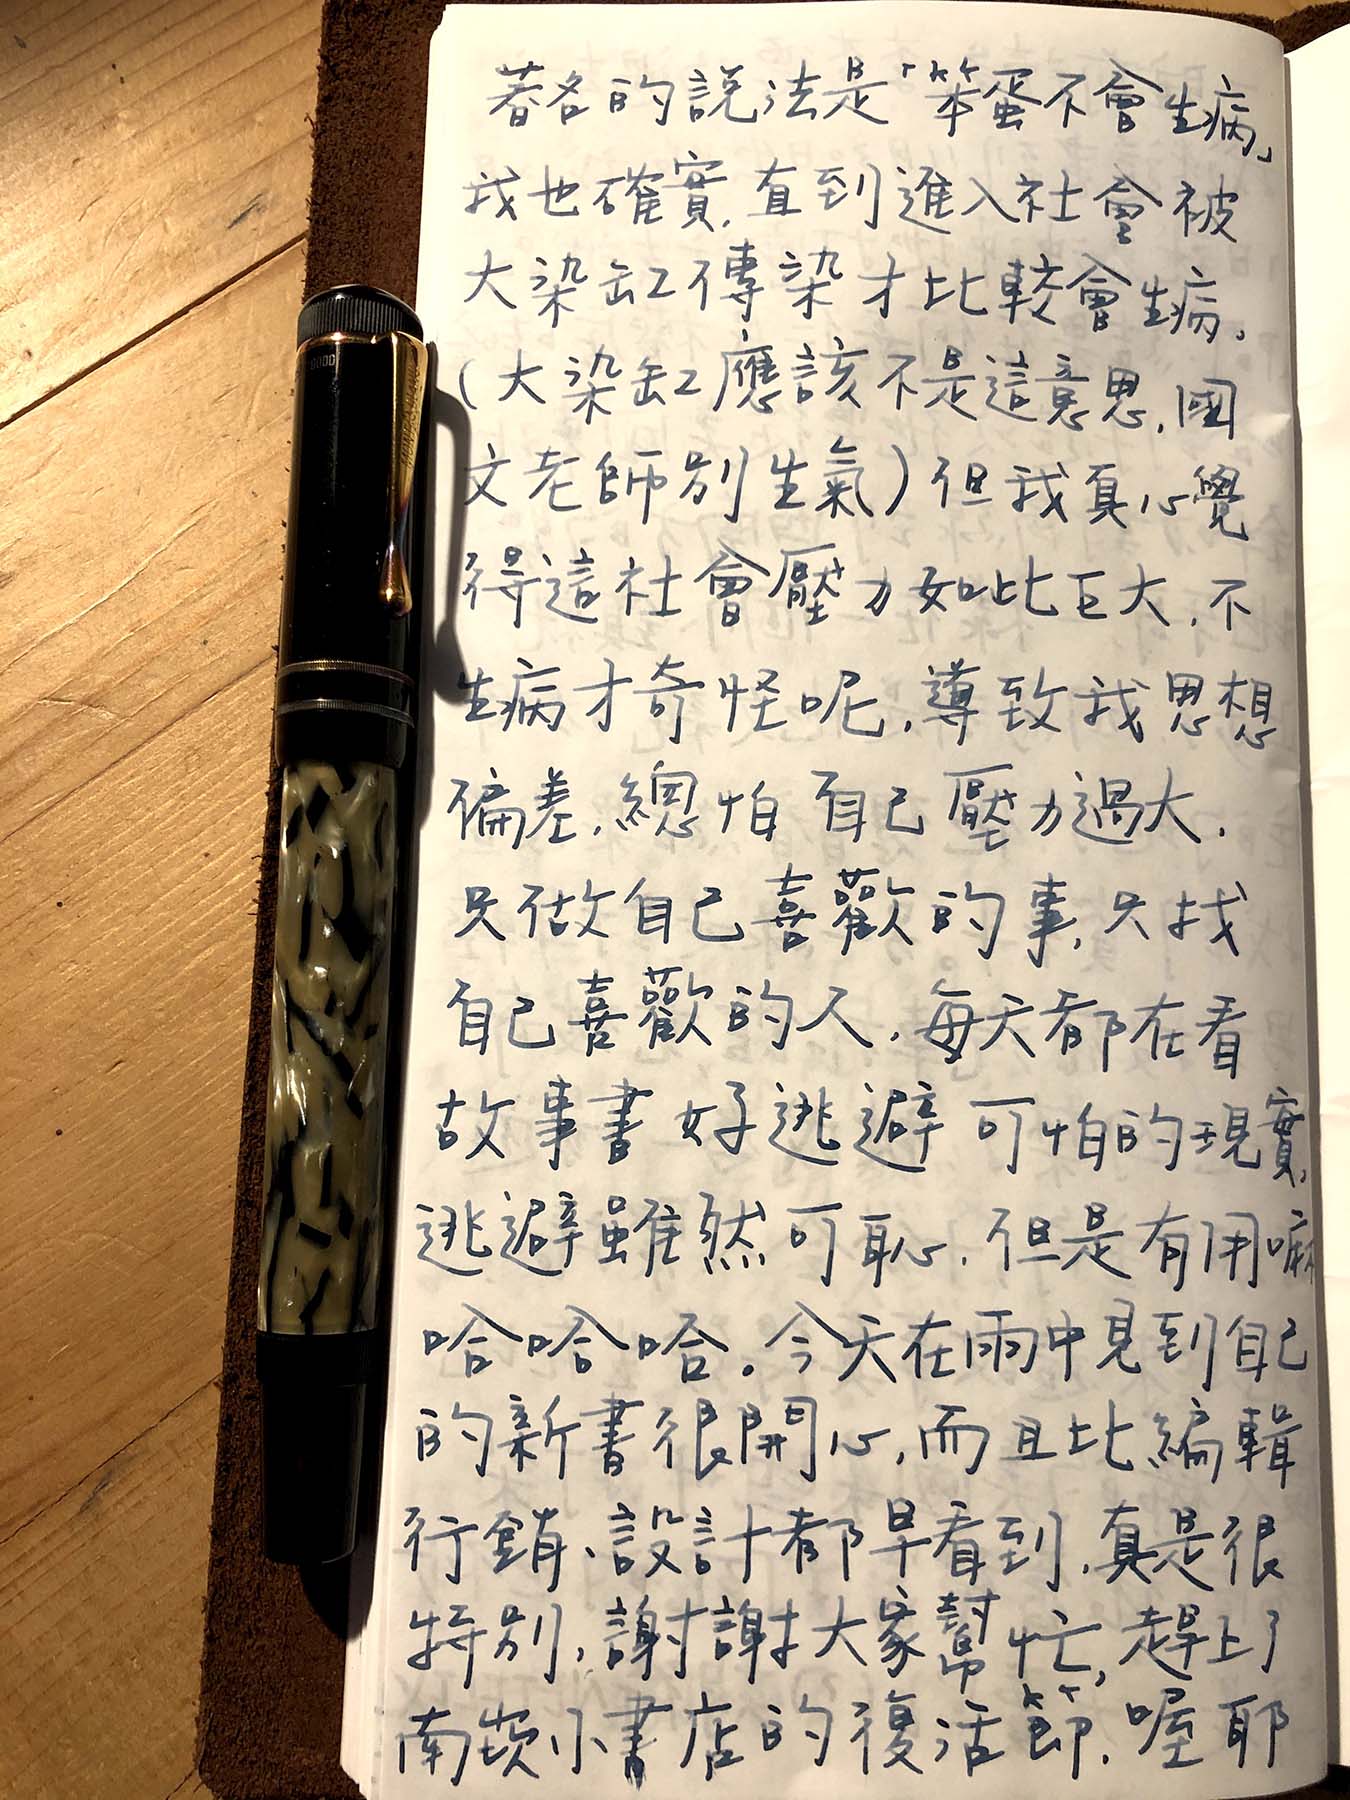 著名的說法是「笨蛋不會生病」
我也確實,直到進入社會被
大染缸傳染才比較會生病。
(大染缸應該不是這意思,國
文老師別生氣)但我真心覺
得這社會壓力如比巨大,不
生病才奇怪呢,導致我思想
偏差,總怕自己壓力過大,
只做自己喜歡的事,只找
自己喜歡的人,每天都在看
故事書 好逃避可怕的現實,
逃避雖然可恥,但是有用嘛
哈哈哈。今天在雨中見到自己
的新書很開心,而且比編輯
行銷、設計都早看到,真是很
特別,謝謝大家幫忙,趕上了
南崁小書店的復活節,喔耶